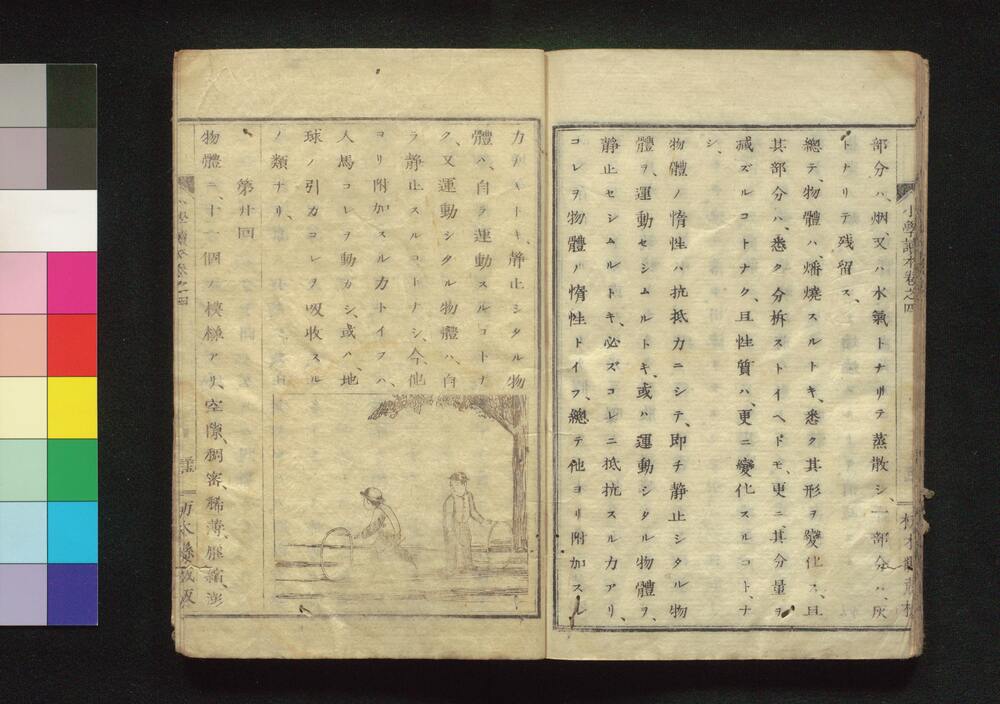 部分ハ、烟、又ハ水氣トナリテ蒸散シ、一部分ハ、灰
トナリテ残留ス、
總テ、物體ハ、燔燒スルトキ、悉ク其形ヲ變化ス、且
其部分ハ、悉ク分拆ストイヘドモ、更ニ、其分量ヲ
減ズルコトナク、且性質ハ、更ニ變化スルコト、ナ
シ、
物體ノ惰性ハ抗抵力ニシテ、即チ静止シタル物
體ヲ、運動セシムルトキ、或ハ運動シタル物體ヲ、
静止セシムルトキ、必ズコレニ抵抗スル力アリ、
コレヲ物體ノ惰性トイフ、總テ他ヨリ附加スル
力ナキトキ、静止シタル物
體ハ、自ラ運動スルコトナ
ク、又運動シタル物體ハ、自
ラ静止スルコトナシ、今、他
ヨリ附加スル力トイフハ、
人馬コレヲ動カシ、或ハ、地
球ノ引力コレヲ吸收スル
ノ類ナリ、
第廿回
物體ニ、十一個ノ模様アリ、空隙、稠密、稀薄、壓縮、澎
小學讀本卷之四